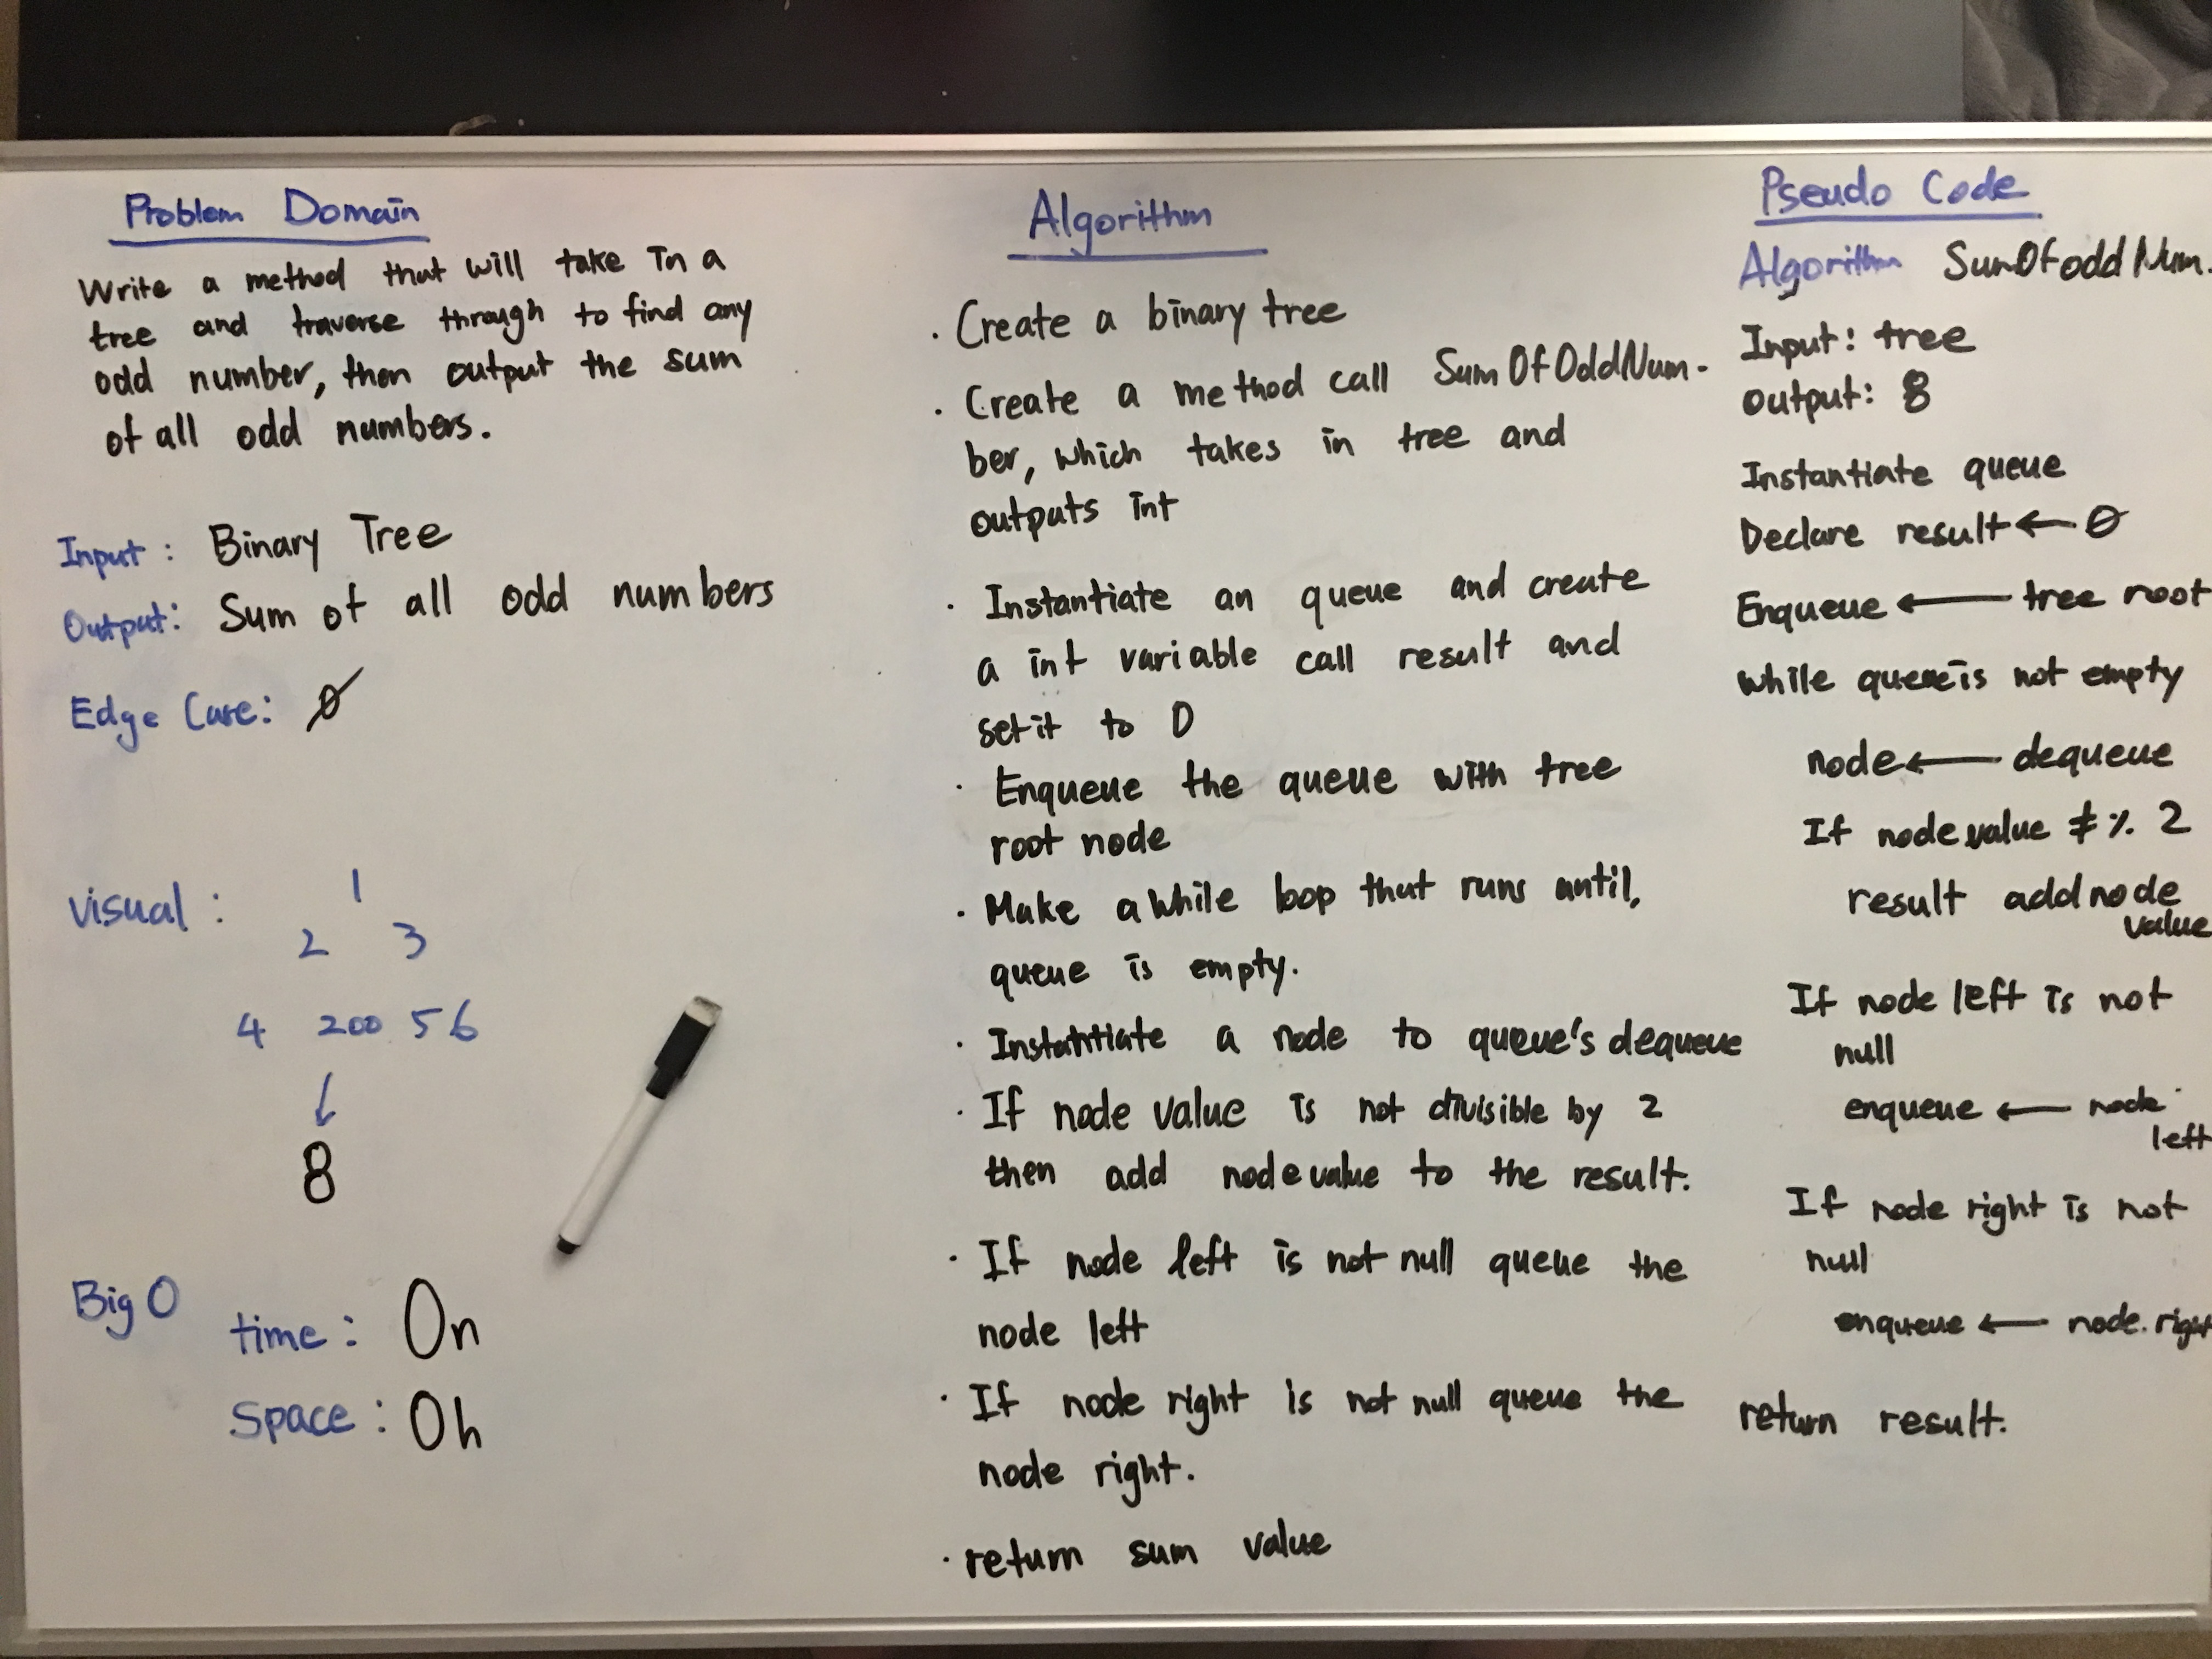 Problem Domain
Write a method that will take in a
tree and traverse through to find any
odd number, then output the sum
of all odd numbers.
Input: Binary Tree
Output: Sum of all odd numbers
Edge Case: Ø
Visual:
1
2 3
4 200 5 6
8
Big O
time: On
Space: Oh
Algorithm
· Create a binary tree
· Create a method call SumOfOddNum-
ber, which takes in tree and
outputs int
· Instantiate an queue and create
a int variable call result and
set it to 0
· Enqueue the queue with tree
root node
· Make a while loop that runs until,
queue is empty.
· Instantiate a node to queue's dequeue
· If node value is not divisible by 2
then add node value to the result.
· If node left is not null queue the
node left
· If node right is not null queue the
node right.
· return sum value
Pseudo Code
Algorithm SumOfoddNum.
Input: tree
output: 8
Instantiate queue
Declare result ← 0
Enqueue ← tree root
while queue is not empty
node ← dequeue
If node value ≠ % 2
result add node
value
If node left is not
null
enqueue ← node
left
If node right is not
null
enqueue ← node.right
return result.